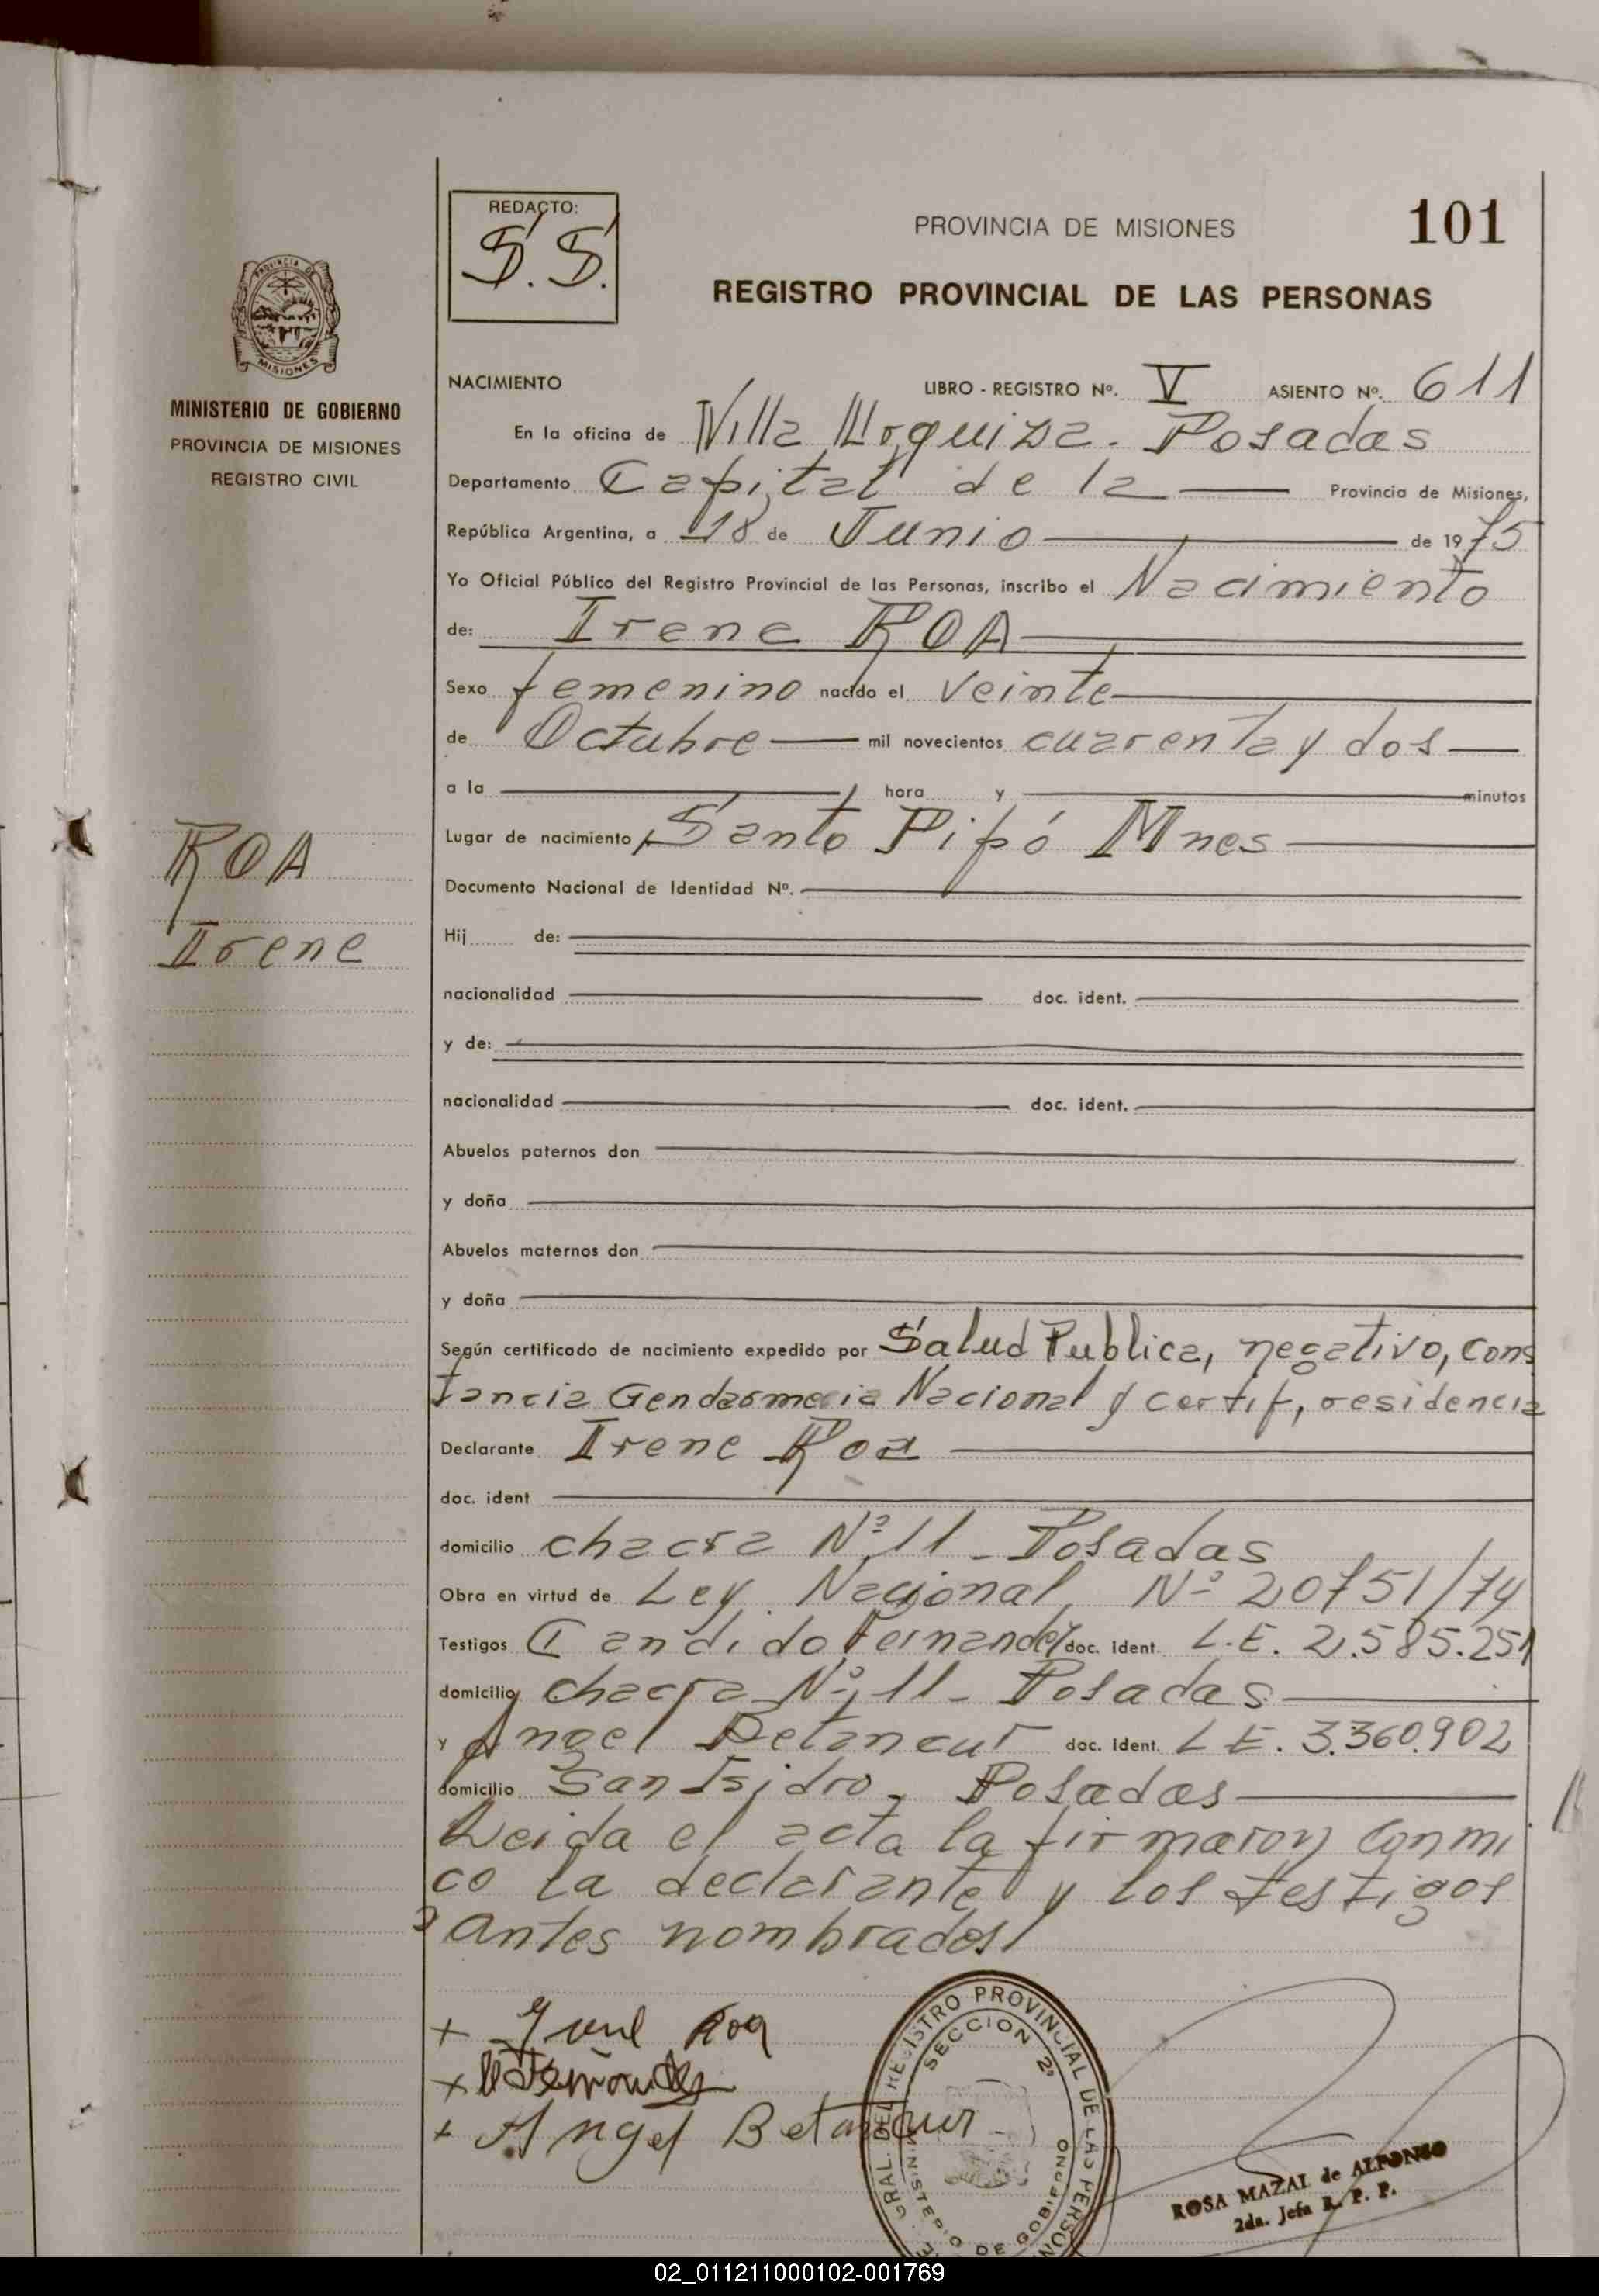 REDACTO:
S.S.
PROVINCIA DE MISIONES
101
REGISTRO PROVINCIAL DE LAS PERSONAS
PROVINCIA DE
MISIONES
MINISTERIO DE GOBIERNO
PROVINCIA DE MISIONES
REGISTRO CIVIL
ROA
Irene
NACIMIENTO LIBRO - REGISTRO Nº. V ASIENTO Nº. 611
En la oficina de Villa Urquiza. Posadas
Departamento Capital de la Provincia de Misiones,
República Argentina, a 18 de Junio de 1975
Yo Oficial Público del Registro Provincial de las Personas, inscribo el Nacimiento
de: Irene ROA
Sexo femenino nacido el veinte
de Octubre mil novecientos cuarenta y dos
a la hora y minutos
Lugar de nacimiento Santo Pipó Mnes
Documento Nacional de Identidad Nº.
Hij de:
nacionalidad doc. ident.
y de:
nacionalidad doc. ident.
Abuelos paternos don
y doña
Abuelos maternos don
y doña
Según certificado de nacimiento expedido por Salud Publica, negativo, cons
tancia Gendarmeria Nacional y certif, residencia
Declarante Irene Roa
doc. ident
domicilio chacra Nº 11 - Posadas
Obra en virtud de Ley Nacional Nº 20751/74
Testigos Candido Fernandez doc. ident. L.E. 2.585.251
domicilio chacra Nº 11 - Posadas
y Angel Betancur doc. Ident. L.E. 3.360.902
domicilio San Isidro - Posadas
Leida el acta la firmaron conmi
co la declarante y los testigos
antes nombrados
+ Roa
+
+ Angel Betancur
GRAL. DEL REGISTRO PROVINCIAL DE LAS PERSON
SECCION 2ª
MINISTERIO DE GOBIERNO
ROSA MAZAL de ALFONSO
2da. Jefa R. P. P.
02_011211000102-001769